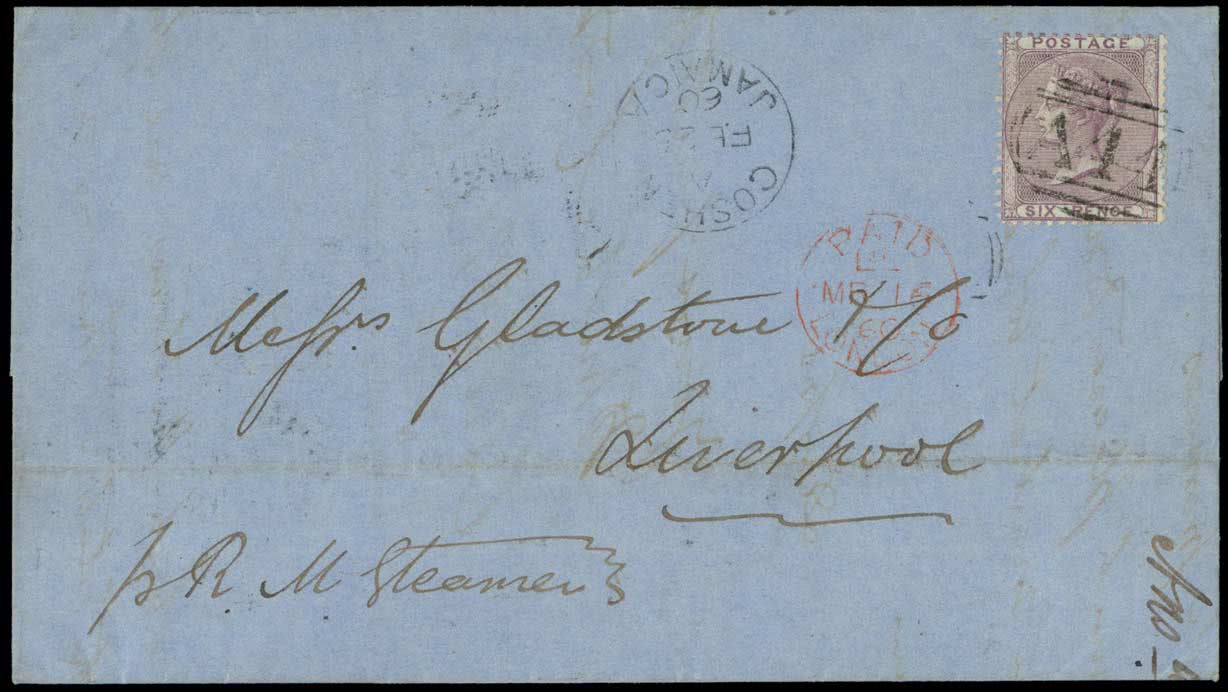 POSTAGE
SIX PENCE
GOSHEN
A
FE 22
60
JAMAICA
PAID
MR 16
60
LONDON
Messrs Gladstone & Co
Liverpool
pr R M Steamer